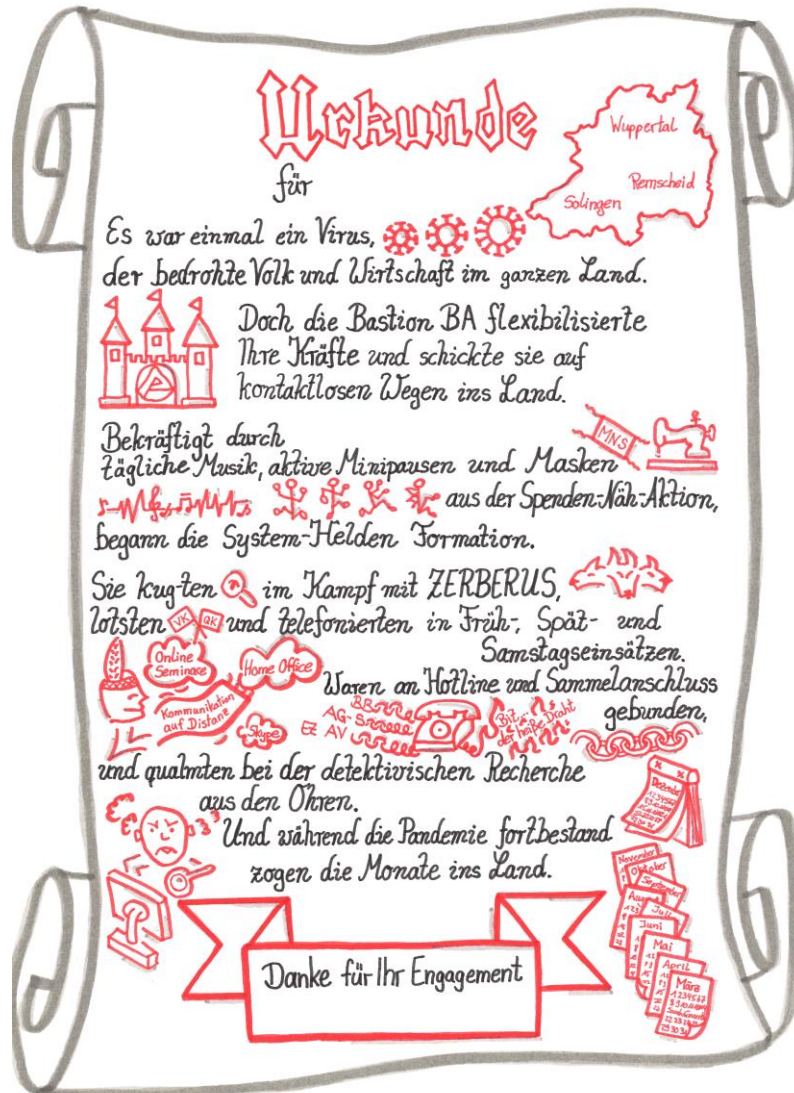 Urkunde
für
Wuppertal
Remscheid
Solingen
Es war einmal ein Virus,
der bedrohte Volk und Wirtschaft im ganzen Land.
Doch die Bastion BA flexibilisierte
Ihre Kräfte und schickte sie auf
kontaktlosen Wegen ins Land.
Bekräftigt durch
tägliche Musik, aktive Minipausen und Masken
MNS
aus der Spenden-Näh-Aktion,
begann die System-Helden Formation.
Sie kug-ten im Kampf mit ZERBERUS,
lotsten VK QK und telefonierten in Früh-, Spät- und
Samstagseinsätzen.
Online
Seminare
Home Office
Kommunikation
auf Distanz
Skype
Waren an Hotline und Sammelanschluss
gebunden,
BB
AG-S
EZ AV
Bit.
der heiße Draht
und qualmten bei der detektivischen Recherche
aus den Ohren.
Und während die Pandemie fortbestand
zogen die Monate ins Land.
Dezember
November
Oktober
September
Juli
Juni
Mai
April
März
1 2 3 4 5 6 7
29 30 31
Danke für Ihr Engagement